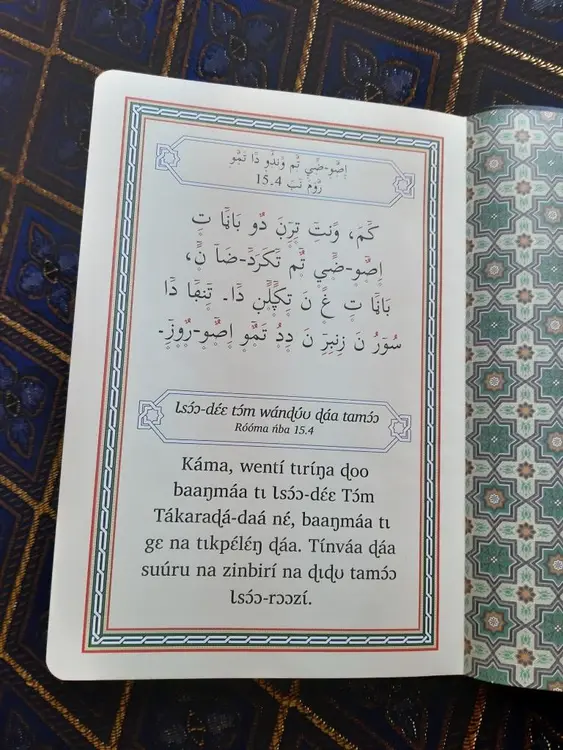 إصٝو-ضٜي تٝم وٗندٝو دَا تَمٝو
رٝومَ نبَ 15.4
كَٗمَ، وٜنتِ تِرِٗنَ دٝو بَانٗاَ تِ
إِصٝو-ضٜي تٝم تَٗكَرَدَٗ-ضَآ نٜ،
بَانٗاَ تِ غٜ نَ تِكپٜلٜن دَا۔ تِٗنڤَا دَا
سُوٗرُ نَ زِنبِرِٗ نَ دِدُ تَمٝو إِصٝو-رٝوزِٗ۔
Ɩsɔ́ɔ-dɛ́ɛ tɔ́m wánɖʊ́ʊ ɖáa tamɔ́ɔ
Róóma ńba 15.4
Káma, wentí tɩríŋa ɖoo
baaŋmáa tɩ Ɩsɔ́ɔ-dɛ́ɛ Tɔ́m
Tákaraɖá-daá nɛ́, baaŋmáa tɩ
gɛ na tɩkpɛ́lɛ́ŋ ɖáa. Tínváa ɖáa
suúru na zinbirí na ɖɩɖʊ tamɔ́ɔ
Ɩsɔ́ɔ-rɔɔzí.